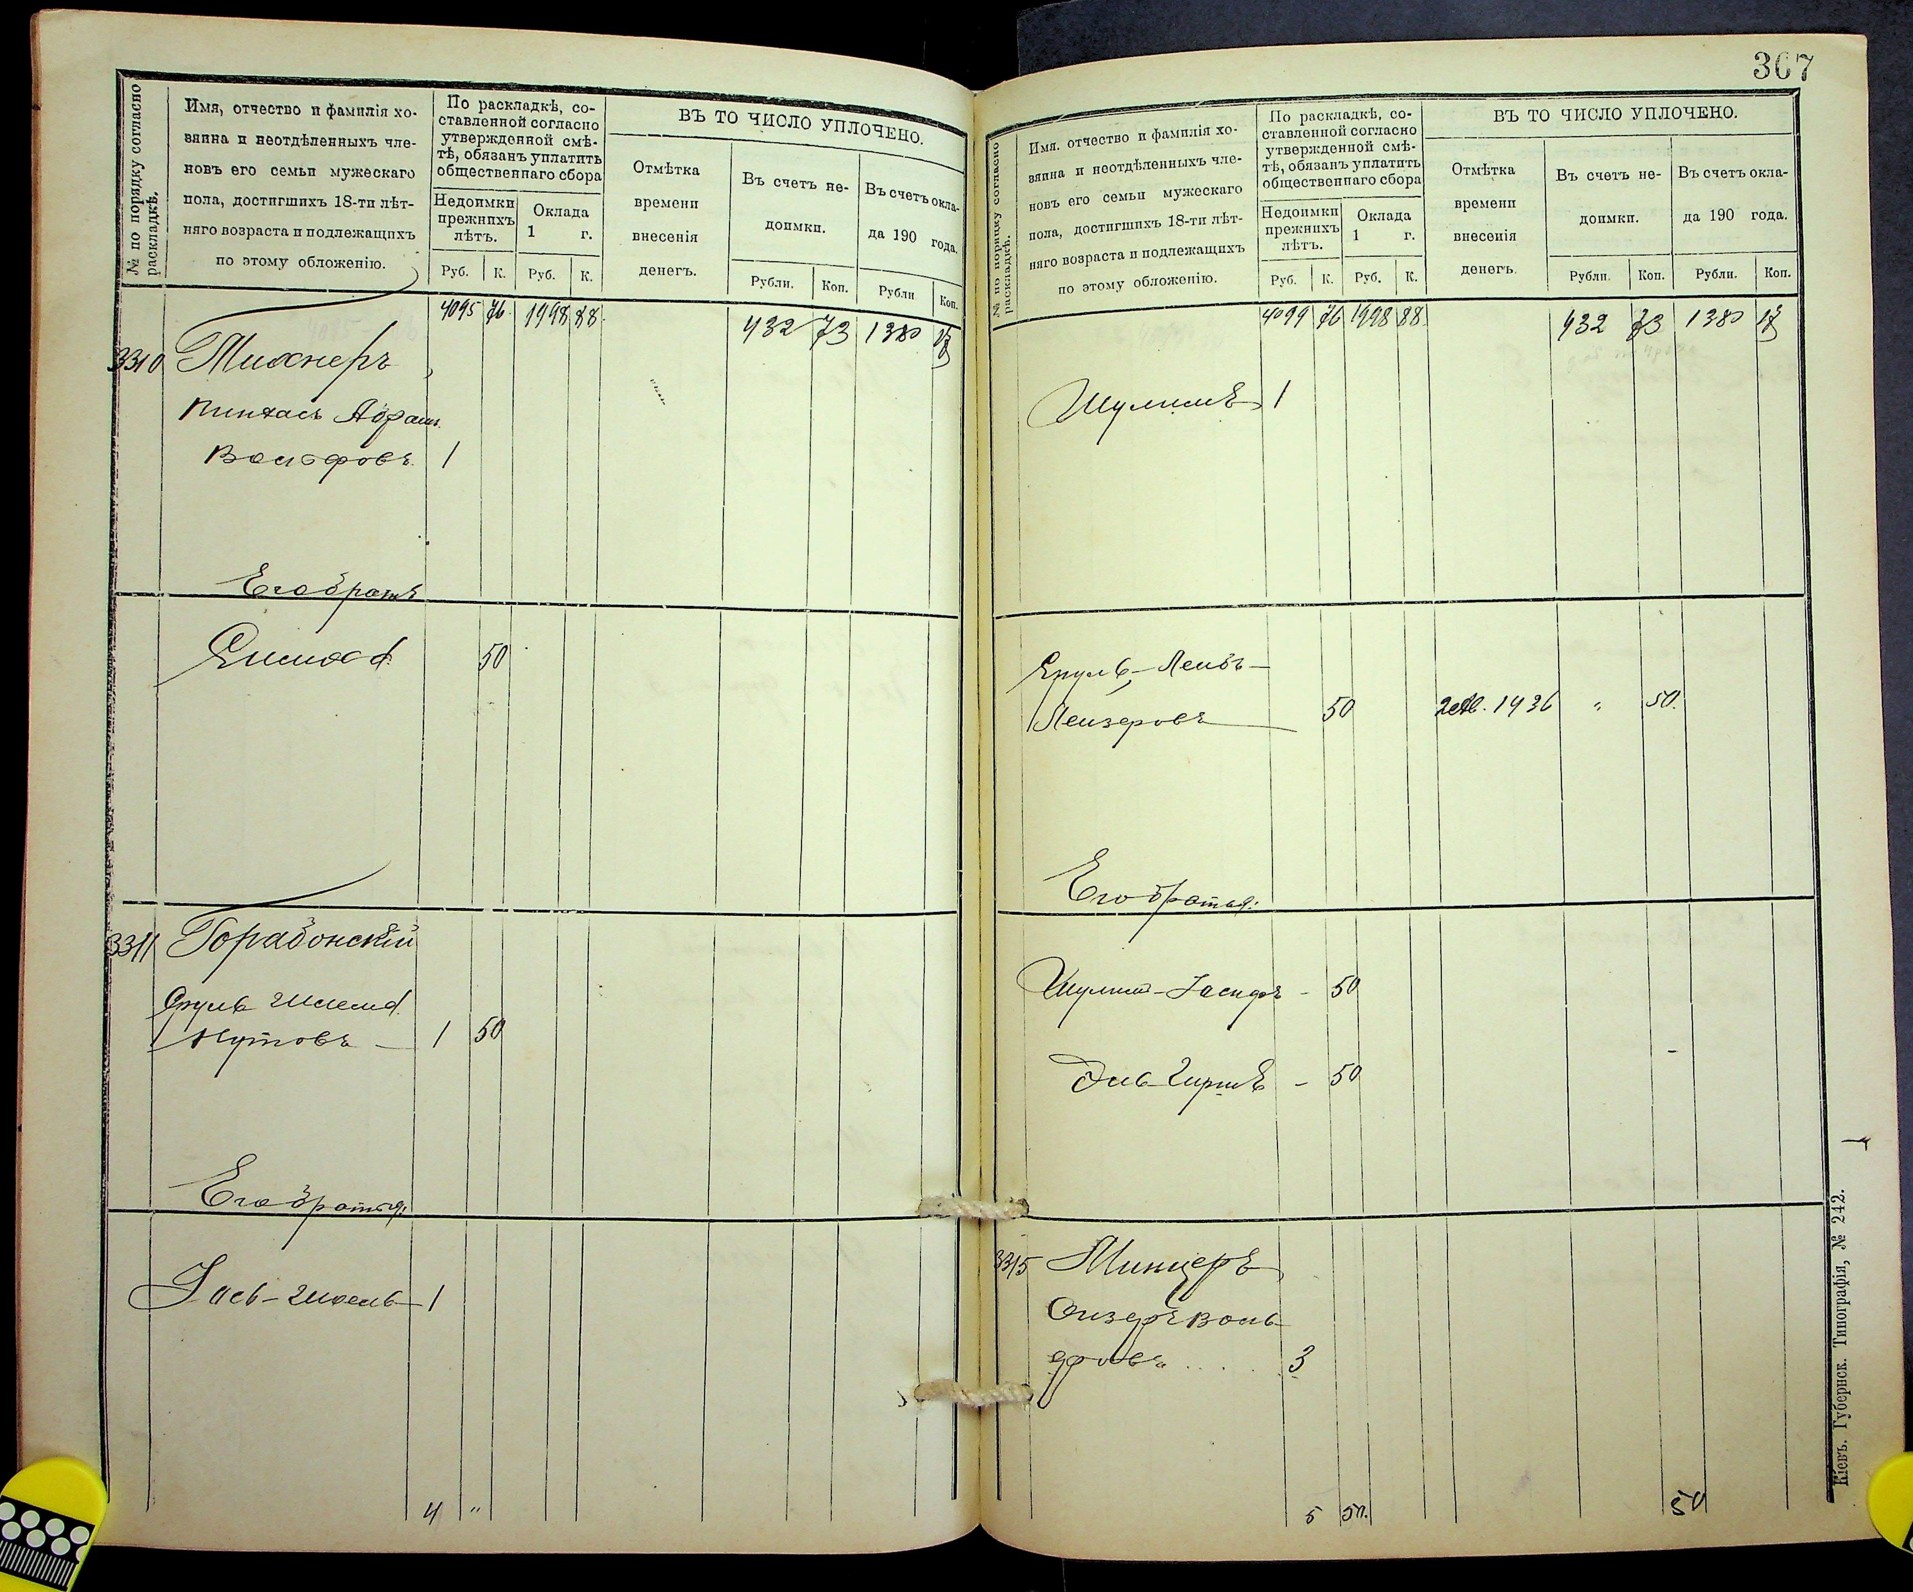 № по порядку согласно раскладкѣ.
Имя, отчество и фамилія хо-
зяина и неотдѣленныхъ чле-
новъ его семьи мужескаго
пола, достигшихъ 18-ти лѣт-
няго возраста и подлежащихъ
по этому обложенію.
По раскладкѣ, со-
ставленной согласно
утвержденной смѣ-
тѣ, обязанъ уплатить
общественнаго сбора
Недоимки
прежнихъ
лѣтъ.
Оклада
1 г.
Руб. К. Руб. К.
ВЪ ТО ЧИСЛО УПЛОЧЕНО.
Отмѣтка
времени
внесенія
денегъ.
Въ счетъ не-
доимки.
Въ счетъ окла-
да 190 года.
Рубли. Коп. Рубли Коп.
4095 76 1998 88 432 73 1380
3310
Пинхасъ Абрам.
1
Его братъ
50
3311
Сруль
Нутовъ 1 50
Его братья:
1
4 "
367
№ по порядку согласно раскладкѣ.
Имя. отчество и фамилія хо-
зяина и неотдѣленныхъ чле-
новъ его семьи мужескаго
пола, достигшихъ 18-ти лѣт-
няго возраста и подлежащихъ
по этому обложенію.
По раскладкѣ, со-
ставленной согласно
утвержденной смѣ-
тѣ, обязанъ уплатить
общественнаго сбора
Недоимки
прежнихъ
лѣтъ.
Оклада
1 г.
Руб. К. Руб. К.
ВЪ ТО ЧИСЛО УПЛОЧЕНО.
Отмѣтка
времени
внесенія
денегъ.
Въ счетъ не-
доимки.
Въ счетъ окла-
да 190 года.
Рубли. Коп. Рубли. Коп.
4099 76 1998 88 432 73 1380
Шулимъ 1
Сруль-Лейбъ
Лейзеровъ 50 1436 " 50.
Его братья:
50
Гершъ - 50
3315 Минцеръ
3
5 50. 50
Кіевъ. Губернск. Типографія, № 242.